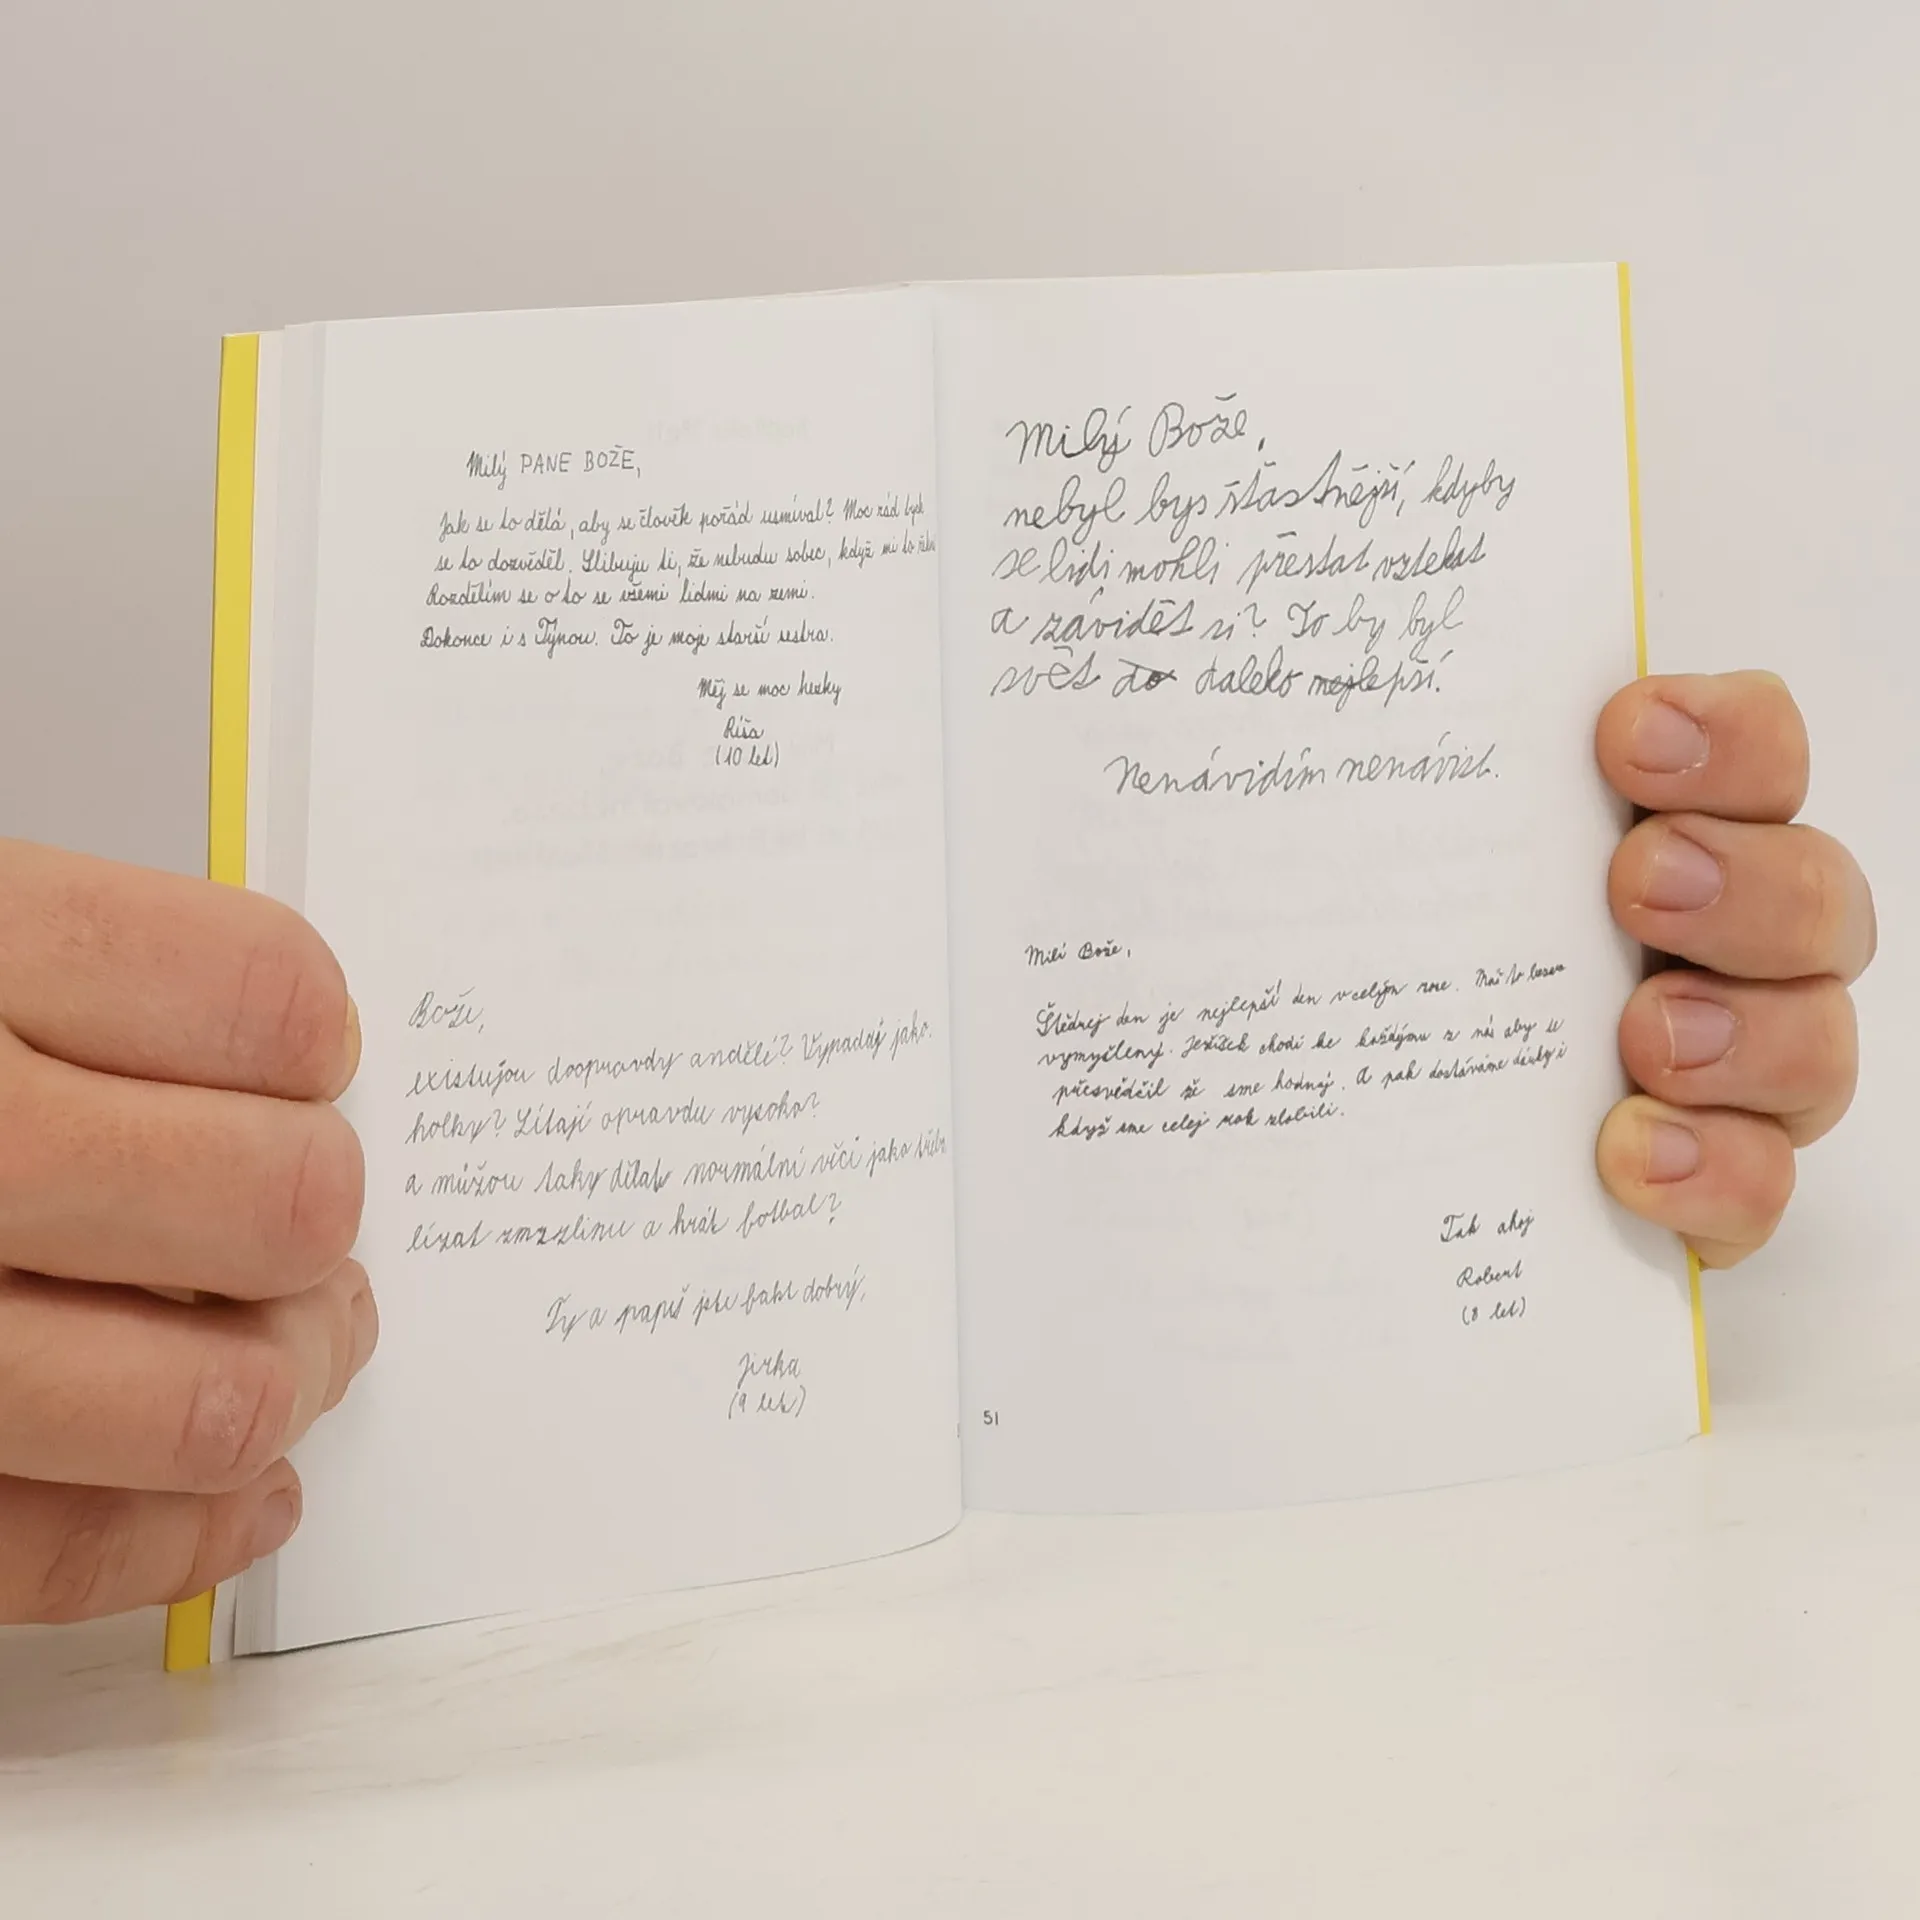 Milý PANE BOŽE,
Jak se to dělá, aby se člověk pořád usmíval? Moc rád bych
se to dozvěděl. Slibuju ti, že nebudu sobec, když mi to
Rozdělím se o to se všemi lidmi na zemi.
Dokonce i s Týnou. To je moje starší sestra.
Měj se moc hezky
Ríša
(10 let)
Bože,
existujou doopravdy andělé? Vypadaj jako
holky? Lítají opravdu vysoko?
a můžou taky dělat normální věci jako
lízat zmrzlinu a hrát fotbal?
Ty a papež jste fakt dobrý,
Jirka
(9 let)
Milý Bože,
nebyl bys šťastnější, kdyby
se lidi mohli přestat vztekat
a závidět si? To by byl
svět do daleko nejlepší.
Nenávidím nenávist.
Milí Bože,
Štědrej den je nejlepší den v celým roce. Máš to
vymyšlený. Ježíšek chodí ke každýmu z nás aby se
přesvědčil že sme hodnej. A pak dostáváme dárky i
když sme celej rok zlobili.
Tak ahoj
Robert
(8 let)
51